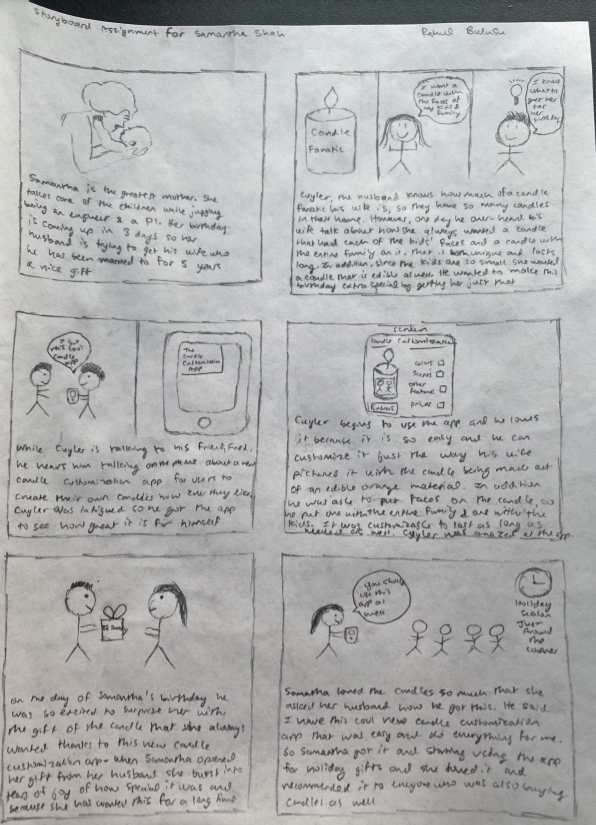 Storyboard Assignment for Samantha Shah
Rahul Bulusu
Samantha is the greatest mother. She
takes care of the children while juggling
being an engineer & a PI. Her birthday
is coming up in 3 days so her
husband is trying to get his wife who
he has been married to for 5 years
a nice gift
Candle
Fanatic
I want a
candle with
the faces of
my kids &
family
I know
what to
get her
for
her
birthday
Cuyler, the husband knows how much of a candle
fanatic his wife is, so they have so many candles
in their home. However, one day he over heard his
wife talk about how she always wanted a candle
that had each of the kids' faces and a candle with
the entire family on it, that is both unique and lasts
long. In addition, since the kids are so small she wanted
a candle that is edible as well. He wanted to make this
birthday extra special by getting her just that
I got
this cool
candle
app
The
Candle
Customization
App
While Cuyler is talking to his friend, Fred,
he hears him talking on the phone about a new
candle customization app for users to
create their own candles how ever they like.
Cuyler was intigued so he got the app
to see how great it is for himself.
Screen
Candle Customization
colors
scents
other
features
prices
Cuyler begins to use the app and he loves
it because it is so easy and he can
customize it just the way his wife
pictured it with the candle being made out
of an edible orange material. In addition
he was able to put faces on the candle, so
he put one with the entire family & one with the
kids. It was customizable to last as long as
needed as well. Cuyler was amazed at the app.
on the day of Samantha's birthday he
was so excited to surprise her with
the gift of the candle that she always
wanted thanks to this new candle
customization app. When Samantha opened
her gift from her husband she burst into
tears of joy of how special it was and
because she has wanted this for a long time
You should
use this
app as
well
Holiday
season
Just
Around
the
corner
Samantha loved the candles so much that she
asked her husband how he got this. He said
I have this cool new candle customization
app that was easy and do everything for me.
So Samantha got it and starting using the app
for holiday gifts and she loved it and
recommended it to anyone who was also buying
candles as well